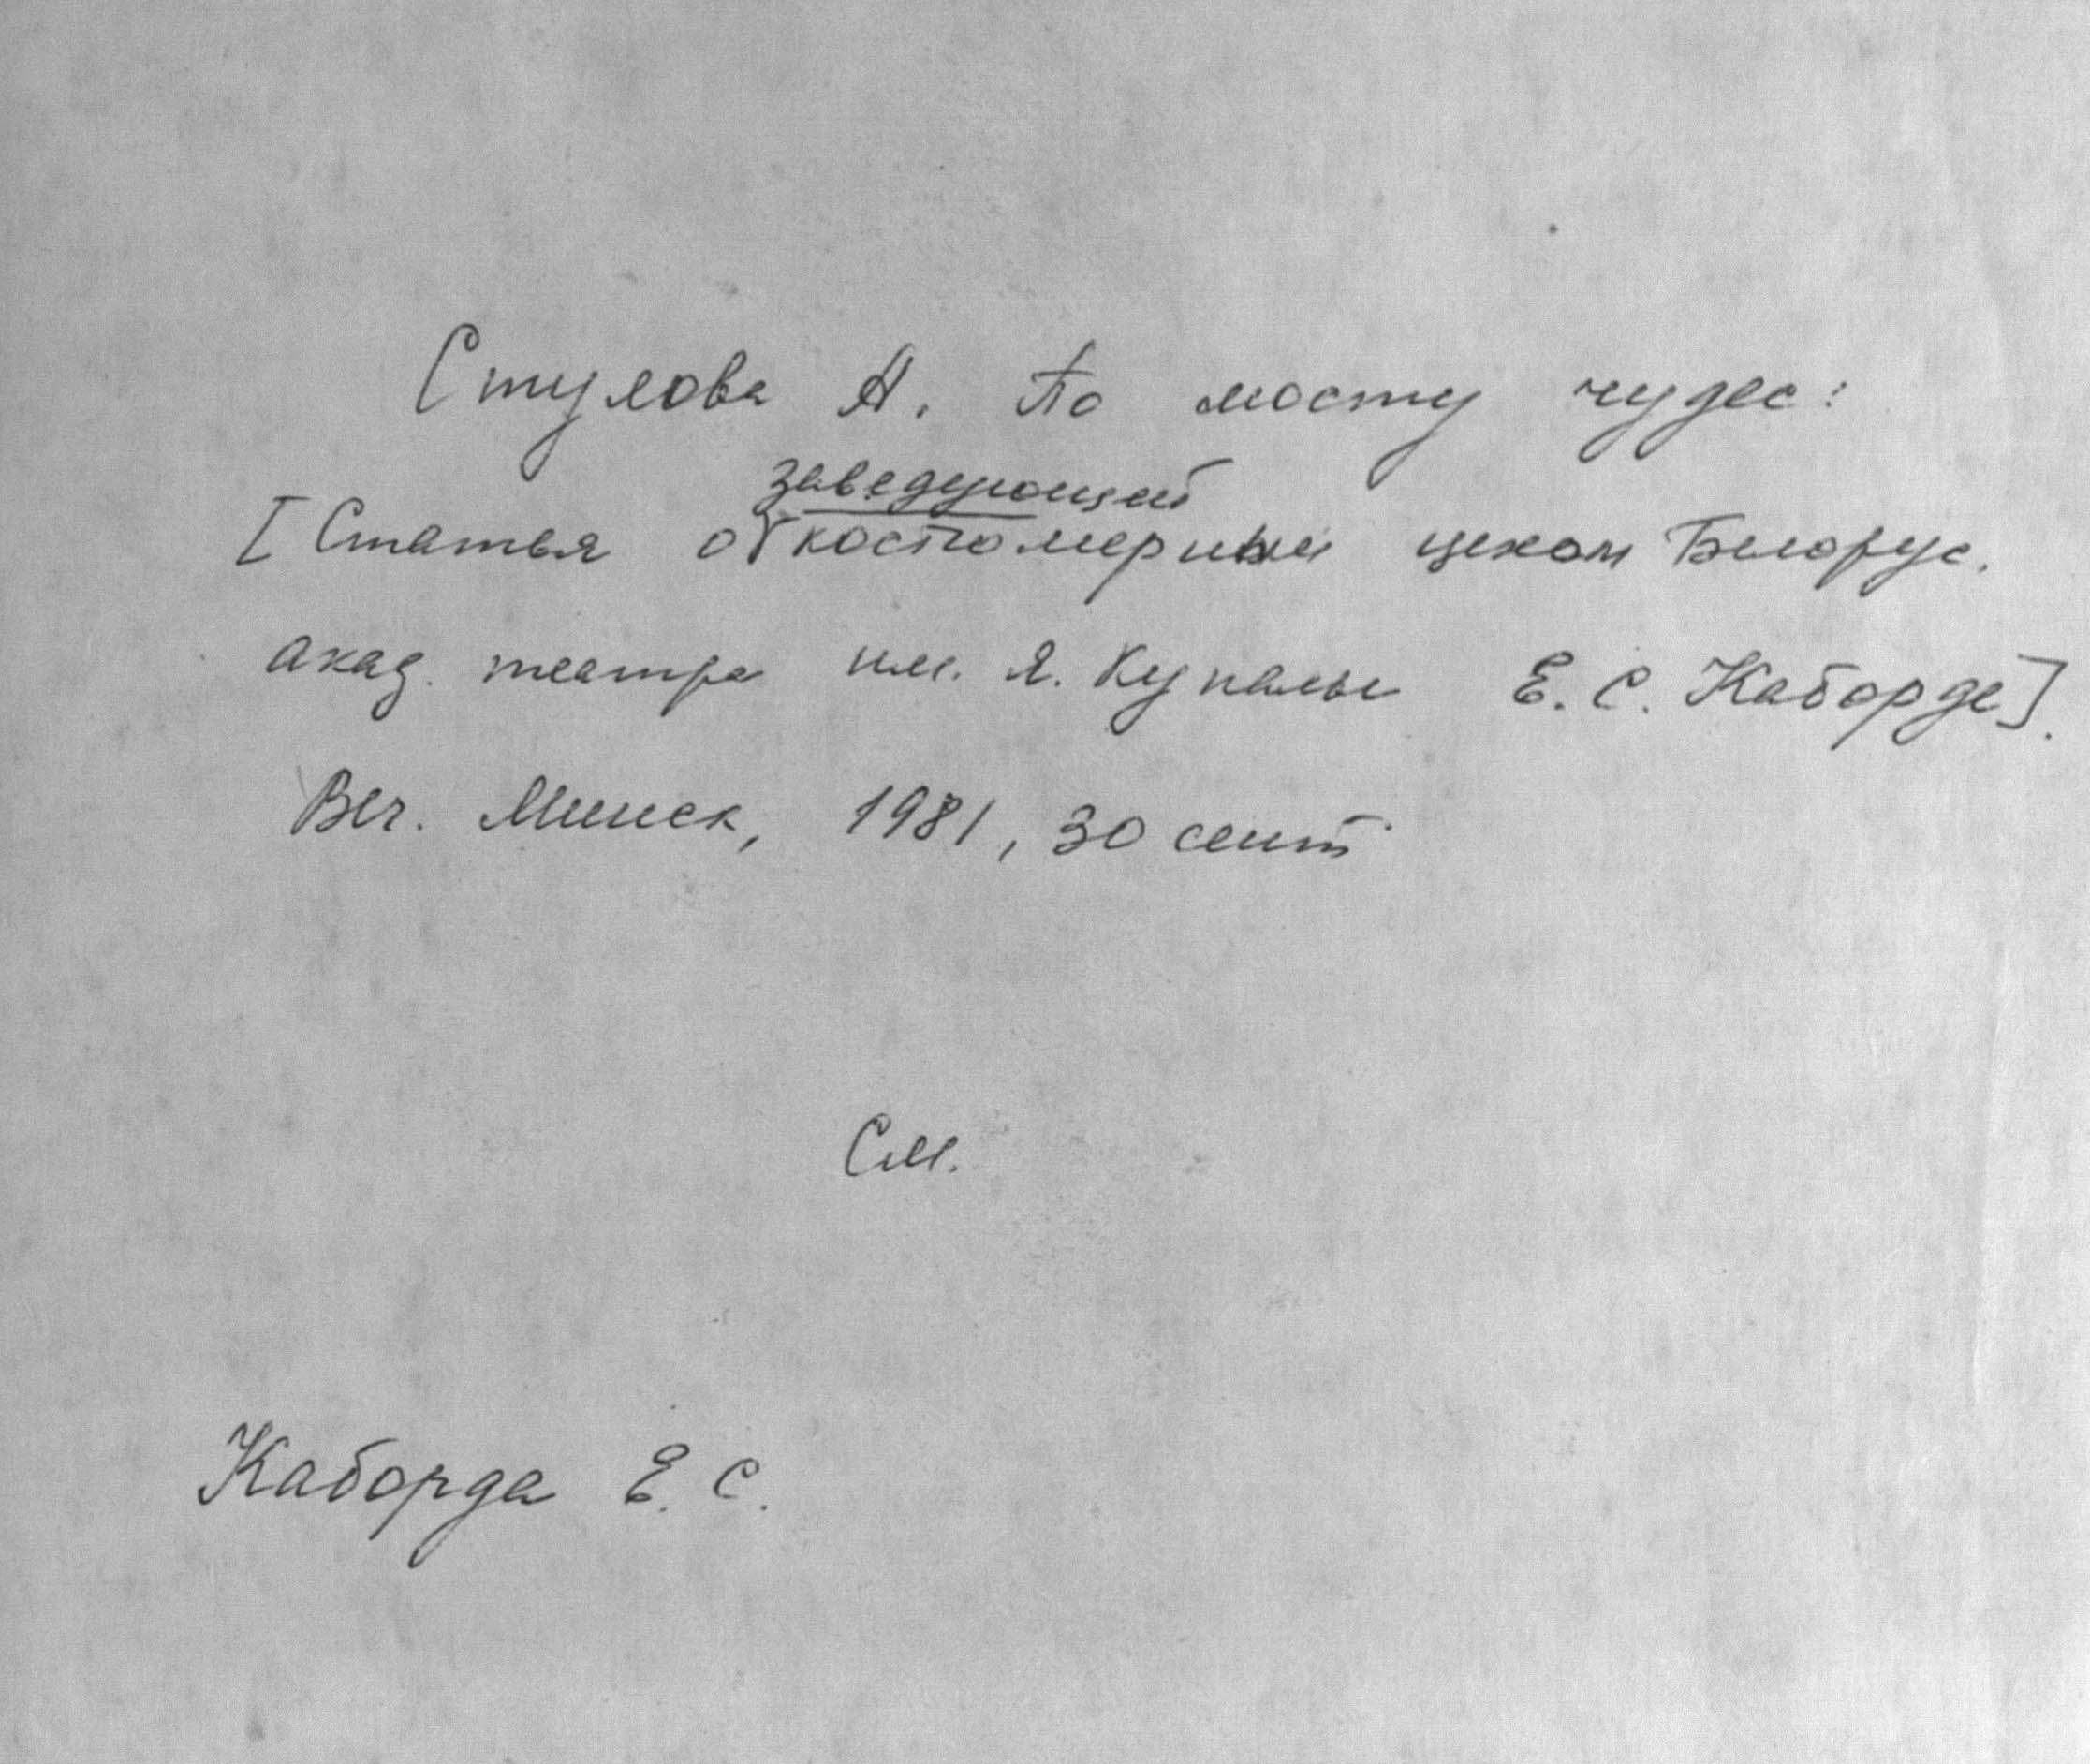 Стулова А. По мосту чудес:
заведующей
[Статья о костюмерным цехом Белорус.
акад. театра им. Я. Купалы Е. С. Каборде].
Веч. Минск, 1981, 30 сент
См.
Каборда Е. С.